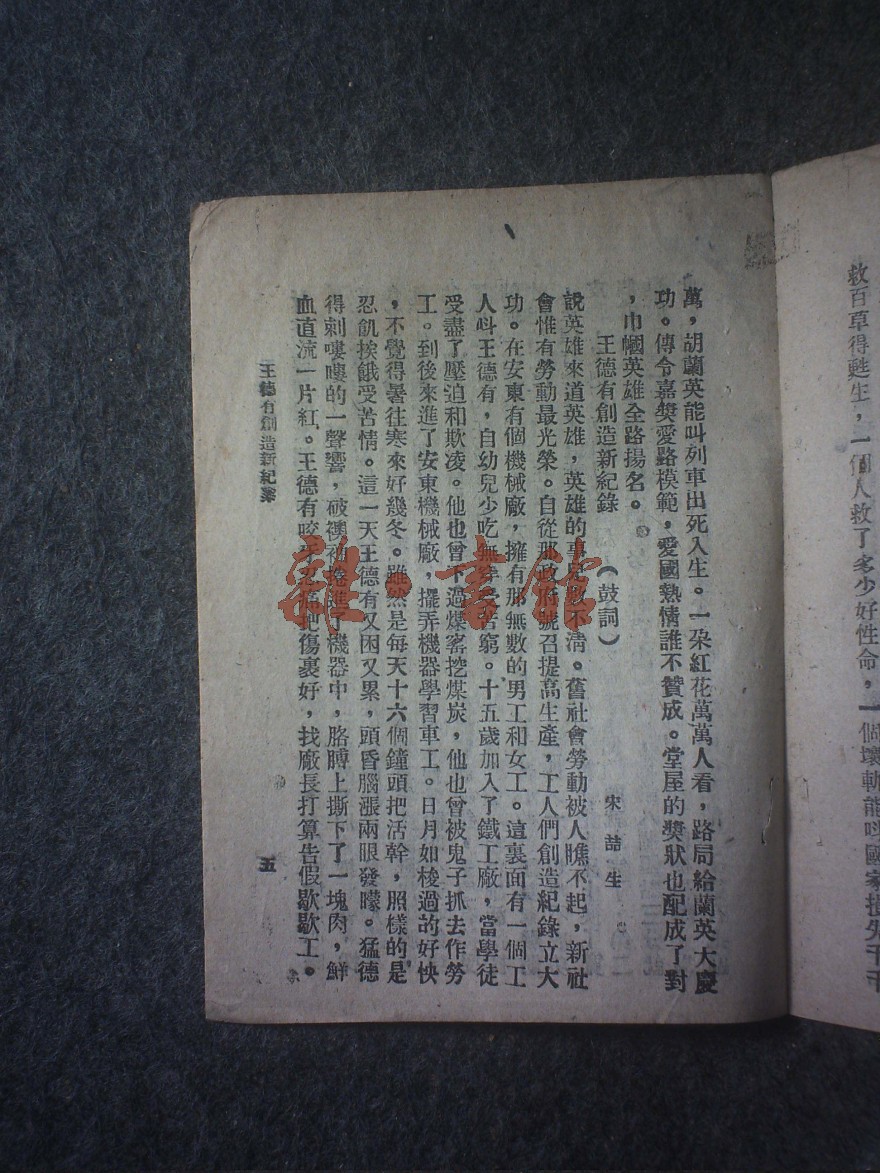 救百草得甦生，一個人救了多少好性命，一個壞軌能叫國家損失千千
萬，胡蘭英能叫列車出死入生。一朵紅花萬萬人看，路局給蘭英大慶
功。傳令嘉獎愛路模範，愛國熱情誰不贊成。堂屋的獎狀也配成了對
，巾幗英雄全路揚名。
王德有創造新紀錄　（鼓詞）　宋詰生
說英雄來道英雄，英雄的事是數不清。舊社會勞動被人瞧不起，新社
會惟有勞動最光榮。自從那政府號召提高生產，工人們創造紀錄立大
功。在安東有個機械廠，擁有那無數的男工和女工。這裏面有一個工
人叫王德有，自幼兒少吃無穿受苦窮。十五歲加入了鐵工廠，當學徒
受盡了壓迫和欺凌。他也曾下過煤窰挖煤炭，他也曾被鬼子抓去作勞
工。到後來進了安東機械廠，擺弄機器學習車工。日月如梭過的好快
，不覺得暑往寒來好幾冬。雖然是每天十六個鐘頭把活幹，照樣的是
忍飢挨餓受苦情。這一天王德有又困又累，頭昏腦漲兩眼發矇。猛德
得剌嘍嘍的一聲響，破襖袖捲進了機器中，胳膊上撕下了一塊肉，鮮
血直流一片紅。王德有咬牙忍痛把傷裹好，找廠長打算告假歇歇工。
王德有創造新紀錄
五
雜·書館